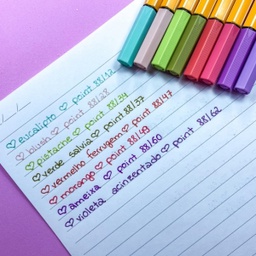 ♡ eucalipto ♡ point 88/12
♡ blush ♡ point 88/28
♡ pistache ♡ point 88/34
♡ verde salvia ♡ point 88/37
♡ vermelho ferrugem ♡ point 88/47
♡ morango ♡ point 88/49
♡ ameixa ♡ point 88/60
♡ violeta acinzentado ♡ point 88/62